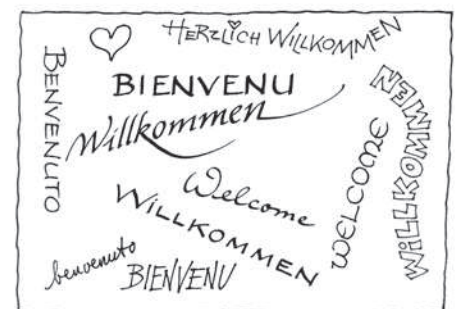 HERZLICH WILLKOMMEN
BENVENUTO
BIENVENU
Willkommen
Welcome
WILLKOMMEN
WELCOME
WiLLKOMMEN
benvenuto
BIENVENU